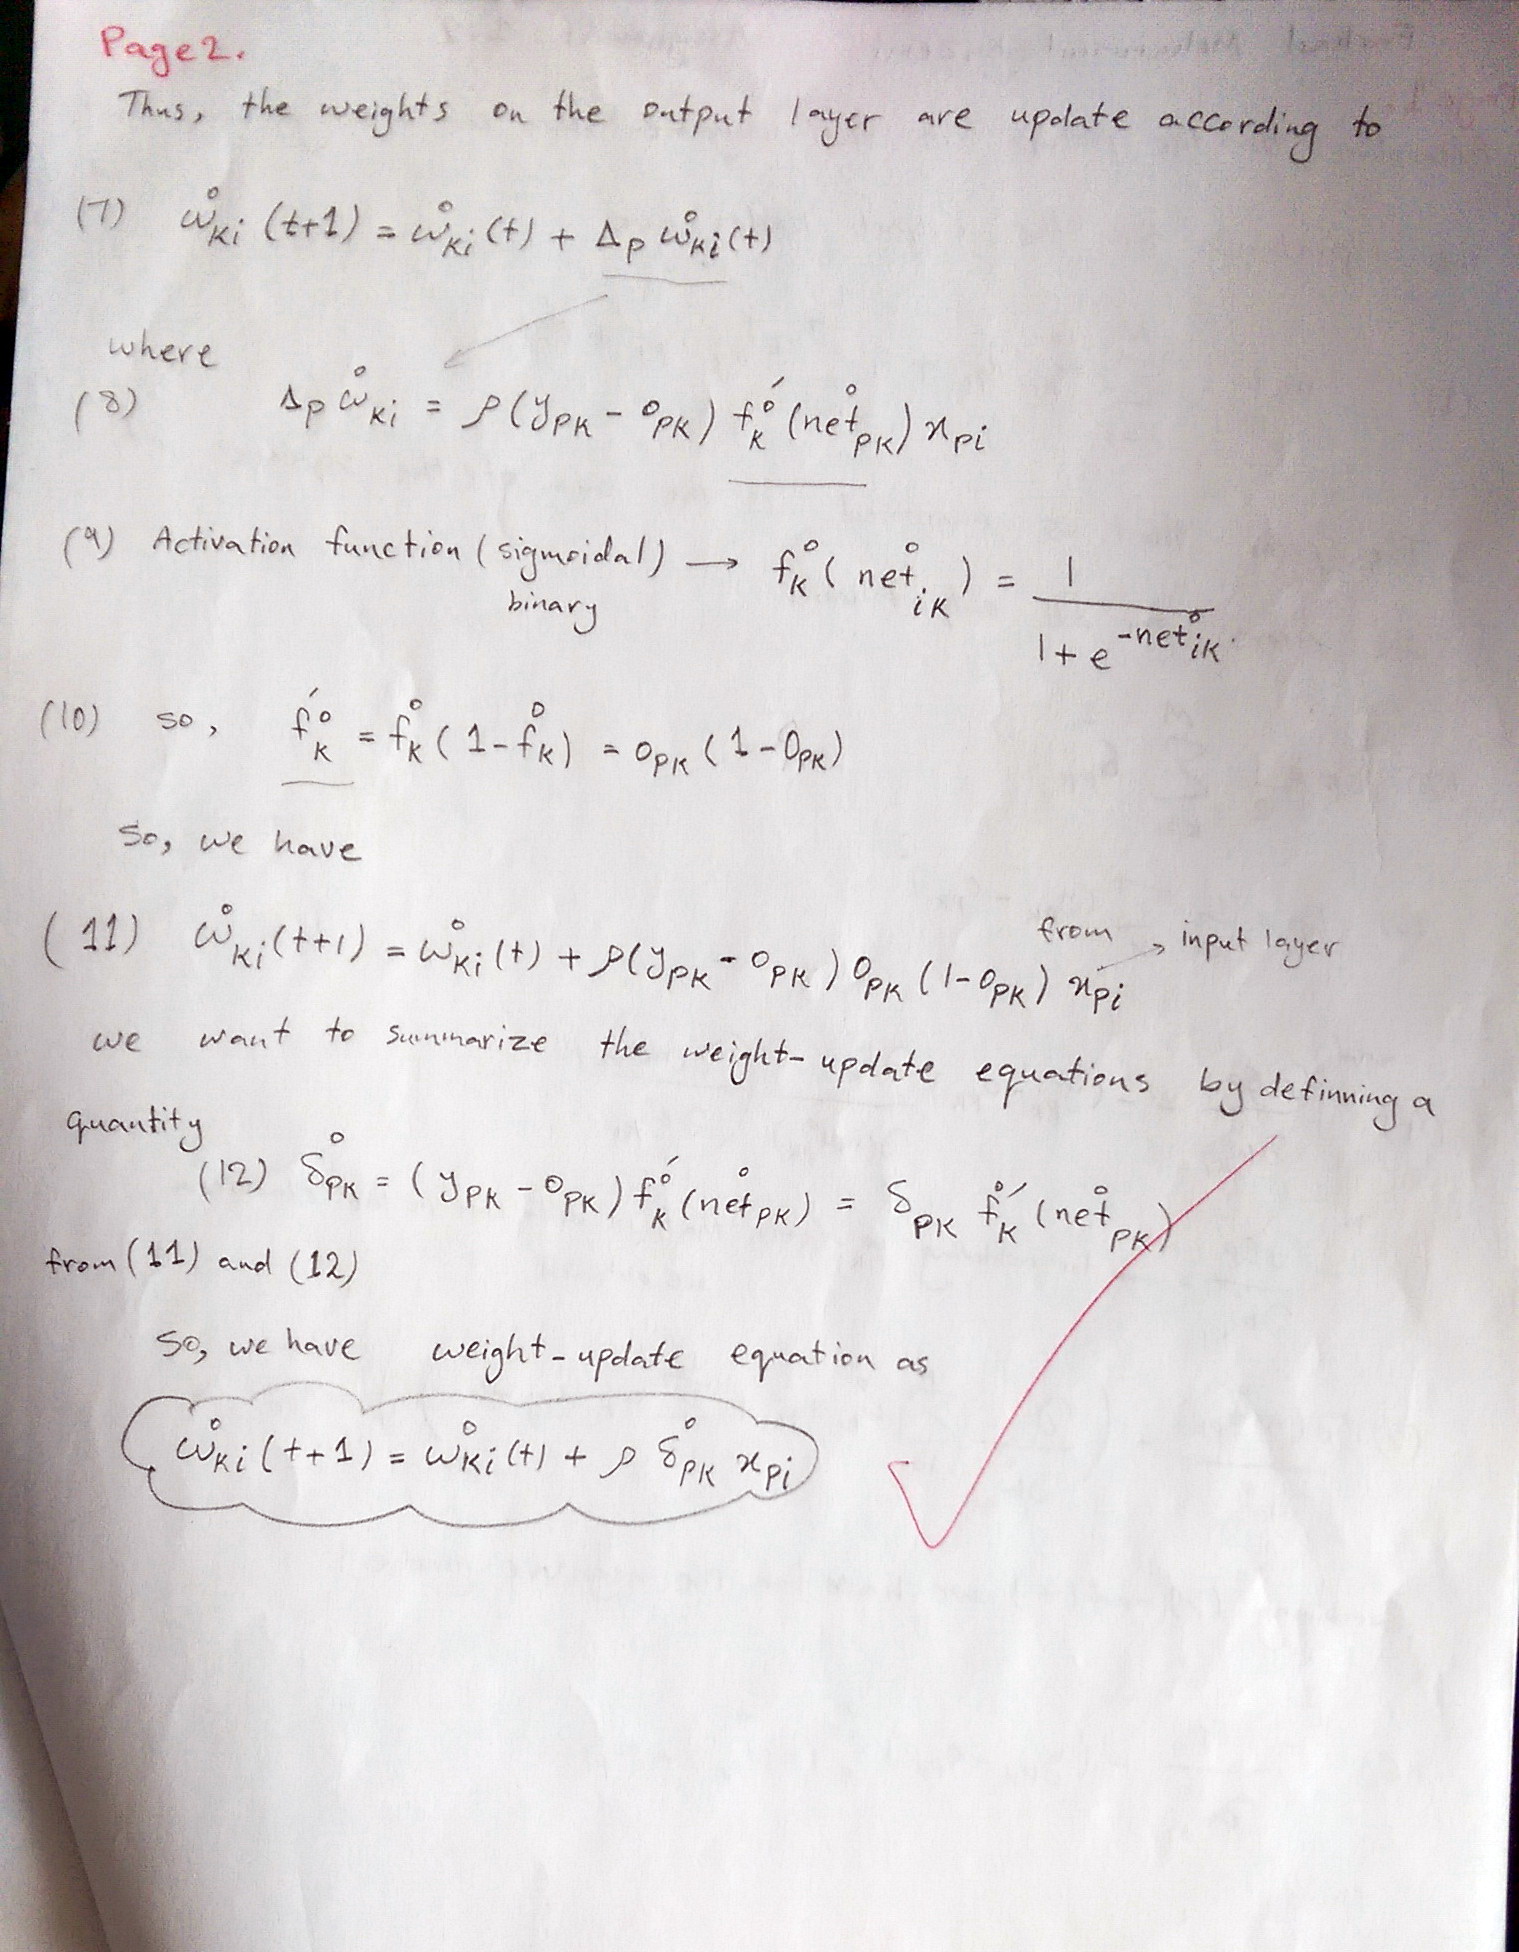 Page 2.
Thus, the weights on the output layer are update according to
(7) w°ki (t+1) = w°ki (t) + Δp w°ki (t)
where
(8) Δp w°ki = ρ(ypk - opk) f°'k (net°pk) xpi
(9) Activation function (sigmoidal) → f°k ( net°ik ) = 1 / 1 + e^-net°ik
binary
(10) so, f°'k = f°k ( 1 - f°k ) = opk ( 1 - Opk )
So, we have
from → input layer
(11) w°ki (t+1) = w°ki (t) + ρ(ypk - opk ) Opk (1 - opk ) xpi
we want to summarize the weight-update equations by definning a
quantity
(12) δ°pk = ( ypk - opk ) f°'k (net°pk) = δpk f°'k (net°pk)
from (11) and (12)
So, we have weight-update equation as
w°ki (t+1) = w°ki (t) + ρ δ°pk xpi